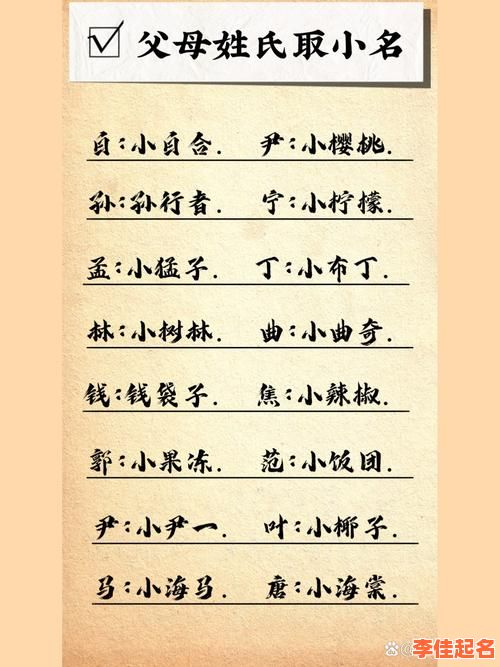 父母姓氏取小名
白:小白合. 尹:小樱桃.
孙:孙行者. 宁:小柠檬.
孟:小猛子. 丁:小布丁.
林:小树林. 曲:小曲奇.
钱:钱袋子. 焦:小辣椒.
郭:小果冻. 范:小饭团.
尹:小尹一. 叶:小椰子.
马:小海马. 唐:小海棠.
李佳起名